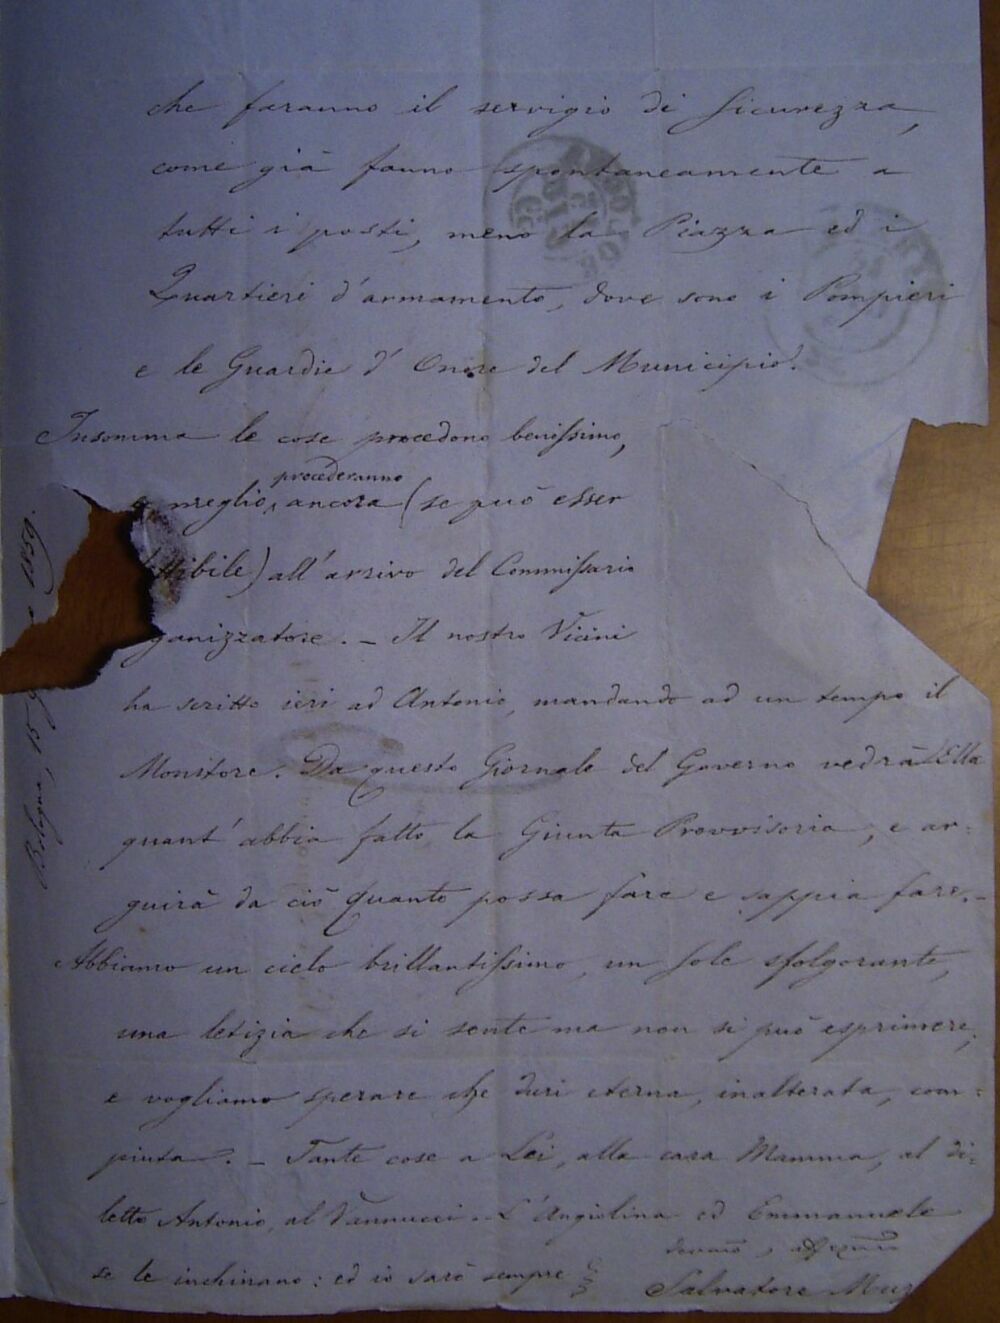 che faranno il servigio di Sicurezza,
come già fanno spontaneamente a
tutti i posti, meno la Piazza ed i
Quartieri d'armamento, dove sono i Pompieri
e le Guardie d'Onore del Municipio.
Insomma le cose procedono benissimo,
procederanno
e meglio ancora (se può esser
ttibile) all'arrivo del Commissario
ganizzatore. - Il nostro Vicini
ha scritto ieri ad Antonio, mandando ad un tempo il
Monitore. Da questo Giornale del Governo vedrà Ella
quant'abbia fatto la Giunta Provvisoria, e ar-
guirà da ciò quanto possa fare e sappia fare. -
Abbiamo un cielo brillantissimo, un sole sfolgorante,
una letizia che si sente ma non si può esprimere;
e vogliamo sperare che duri eterna, inalterata, com-
piuta. - Tante cose a Lei, alla cara Mamma, al di-
letto Antonio, al Vannucci. L'Angiolina ed Emmanuele
se le inchinano: ed io sarò sempre
Salvatore Muz
Bologna, 15 1859.